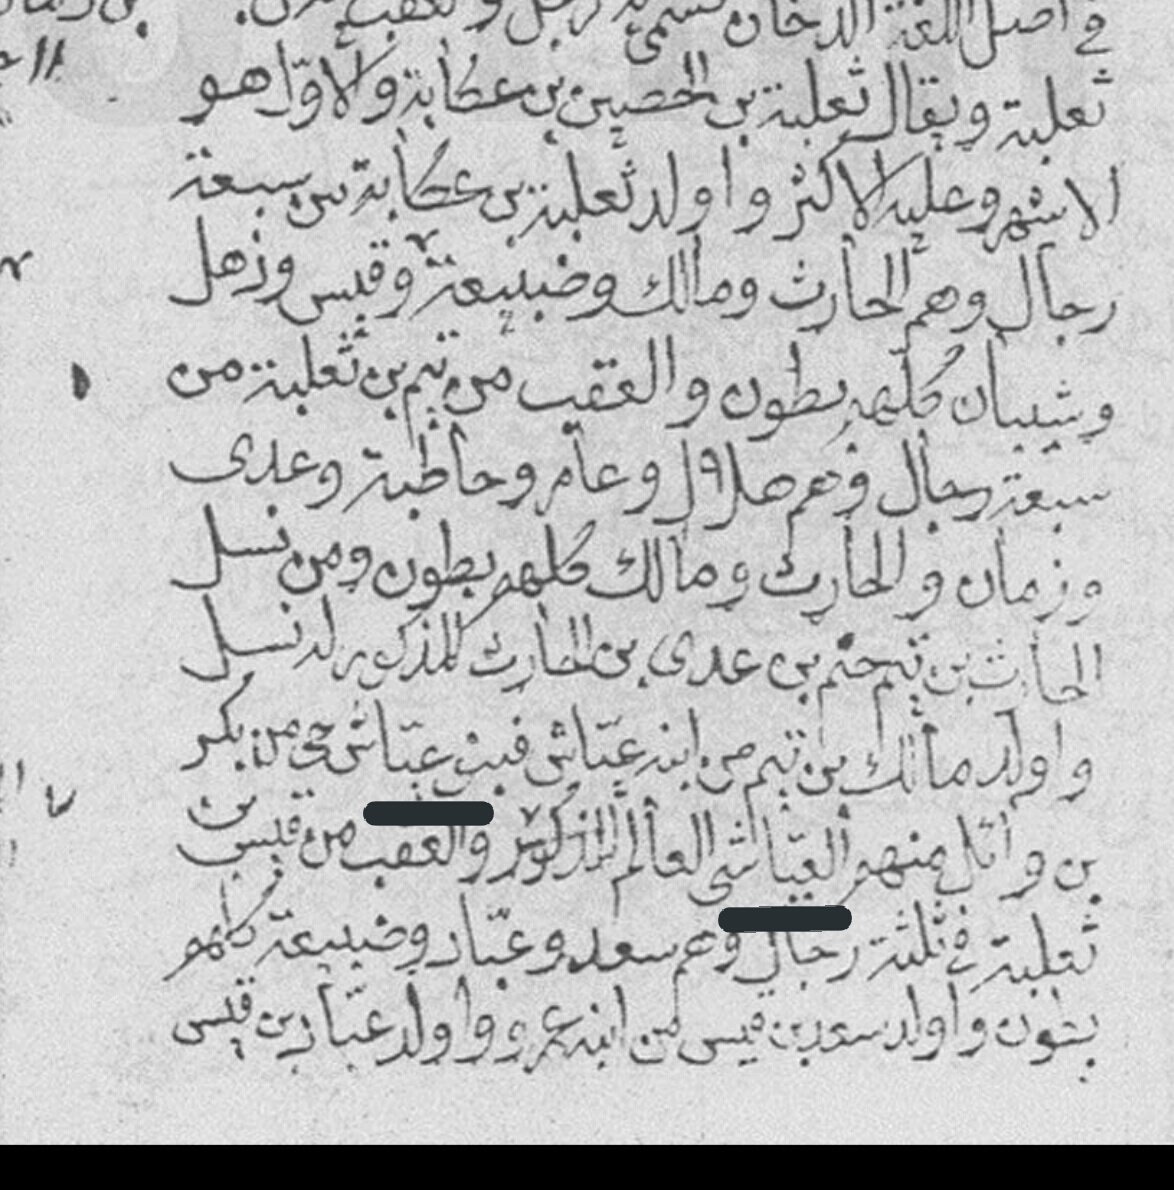 في اصل اللغة الدخان
ثعلبة ويقال ثعلبة بن الحصين بن عكابة والاول هو
الاشهر وعليه الاكثر واولد ثعلبة بن عكابة من سبعة
رجال وهم الحارث ومالك وضبيعة وقيس وذهل
وشيبان كلهم بطون والعقب من تيم بن ثعلبة من
سبعة رجال وهم هلال وعامر وحاطبة وعدى
وزمان والحارث ومالك كلهم بطون ومن نسل
الحارث بن تيم بن عدى بن الحارث نسل
واولد مالك بن تيم من ابنه عياش فبنو عياش حى من بكر
بن وائل منهم العياشى العالم المذكور والعقب من قيس بن
ثعلبة في ثلثة رجال وهم سعد وعباد وضبيعة كلهم
بطون واولد سعد بن قيس من ابنه عمرو واولد عباد بن قيس